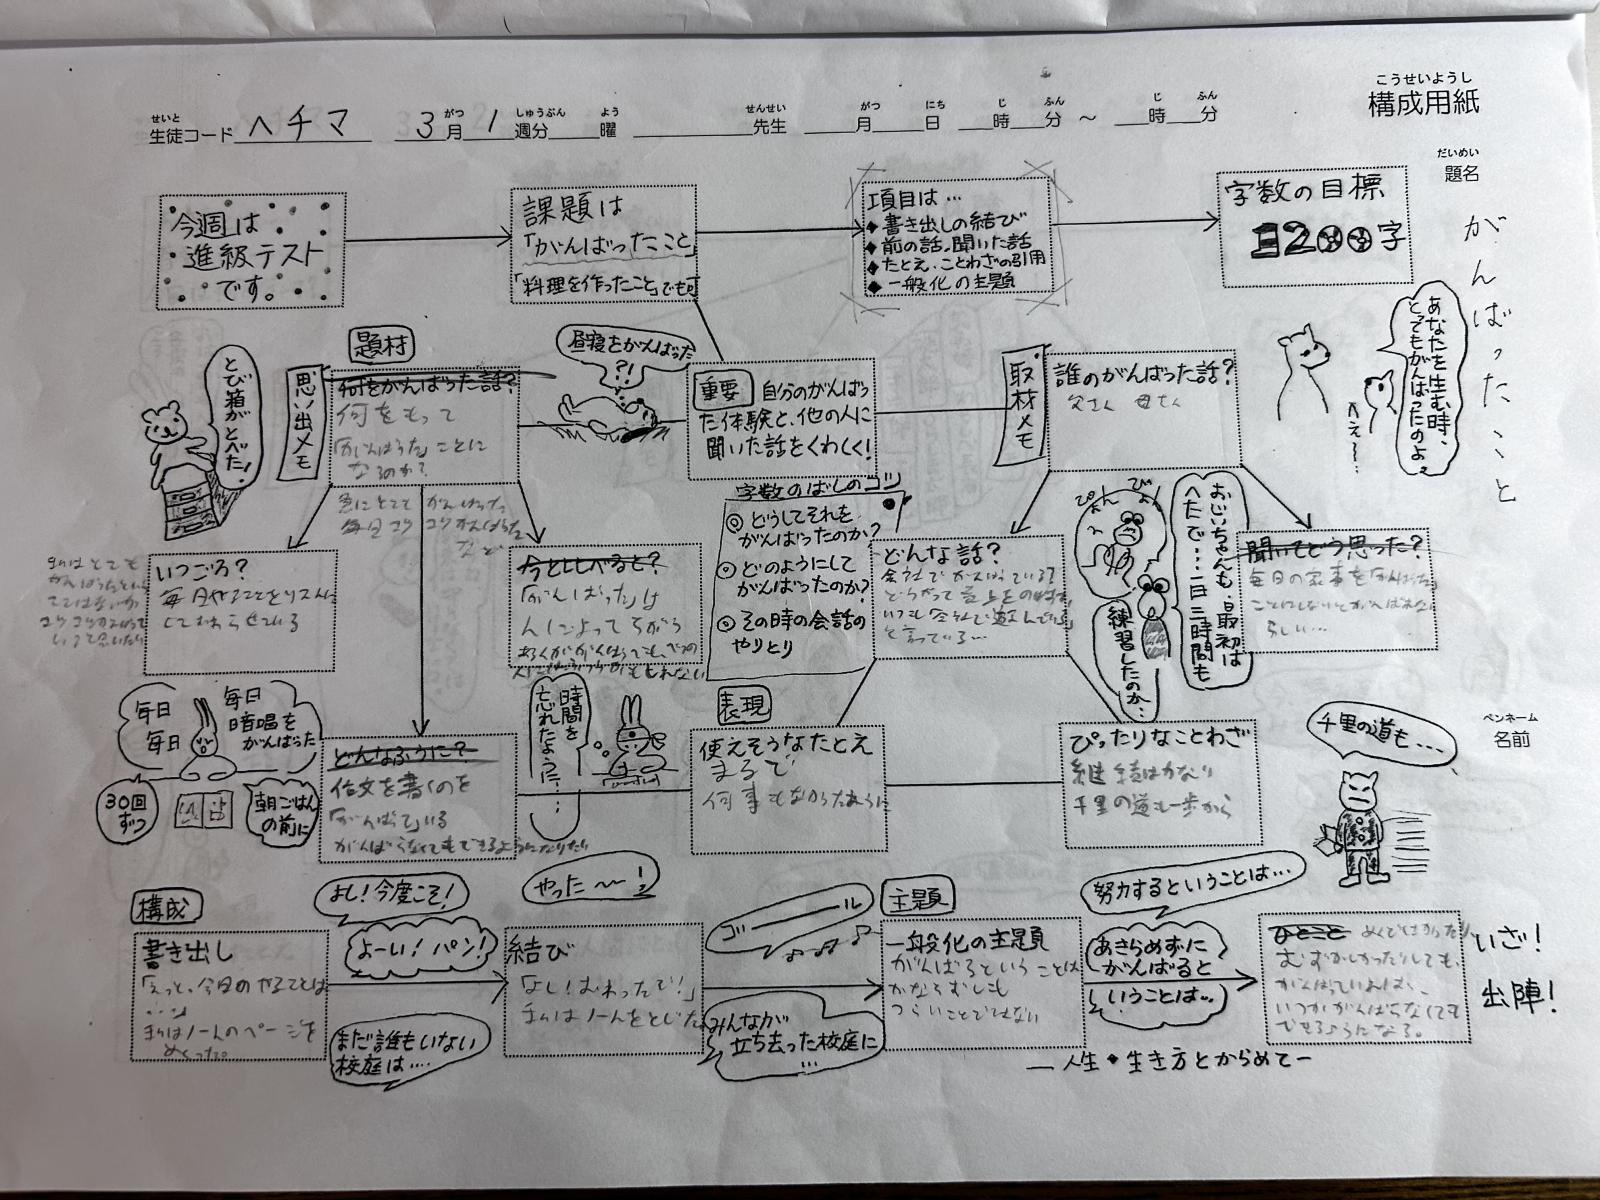 こうせいようし
構成用紙
せいと がつ しゅうぶん よう せんせい がつ にち じ ふん じ ふん
生徒コード ヘチマ 3月 1週分 曜 先生 月 日 時 分 ～ 時 分
だいめい
題名
がんばったこと
今週は
進級テスト
です。
課題は
「がんばったこと」
「料理を作ったこと」でも可
項目は…
◆書き出しの結び
◆前の話、聞いた話
◆たとえ・ことわざの引用
◆一般化の主題
字数の目標
1200字
とび箱がとべた!
思い出メモ
題材
何をがんばった話?
何をもって
「がんばった」ことに
なるのか?
昼寝をがんばった
?!
重要 自分のがんばっ
た体験と、他の人に
聞いた話をくわしく!
取材メモ
誰のがんばった話?
父さん 母さん
あなたを生む時、
とってもがんばったのよ
へえ~…
いつごろ?
毎日やることをリストに
しておわらせている
毎日コツコツがんばった
など
今とくらべると?
「がんばった」は
人によってちがう
字数のばしのコツ
◎どうしてそれを
がんばったのか?
◎どのようにして
がんばったのか?
◎その時の会話の
やりとり
どんな話?
会社でがんばっている?
と言っている…
ぴょん
おじいちゃんも、最初は
へたで…一日三時間も
練習したのか…
聞いてどう思った?
毎日の家事を「がんばった」
ことにしないとがんばれない
らしい…
毎日
毎日
毎日
暗唱を
がんばった
30回
ずつ
朝ごはん
の前に
どんなふうに?
作文を書くのを
「がんばって」いる
がんばらなくてもできるようになりたい
時間を
忘れたように…
表現
使えそうなたとえ
まるで
何事もなかったように
ぴったりなことわざ
継続は力なり
千里の道も一歩から
千里の道も…
ペンネーム
名前
構成
書き出し
「えっと、今日のやることは
……」
ぼくはノートのページを
めくった。
よし!今度こそ!
よーい!パン!
まだ誰もいない
校庭は…
やった~~!
結び
「よし!おわったで!」
ぼくはノートをとじた
ゴーーール
みんなが
立ち去った校庭に
…
主題
一般化の主題
がんばるということは
かならずしも
つらいことではない
努力するということは…
あきらめずに
がんばると
いうことは…
ひとこと めんどくさかったり
むずかしかったりしても、
がんばっていれば、
いつかがんばらなくても
できるようになる。
いざ!
出陣!
―人生◆生き方とからめて―